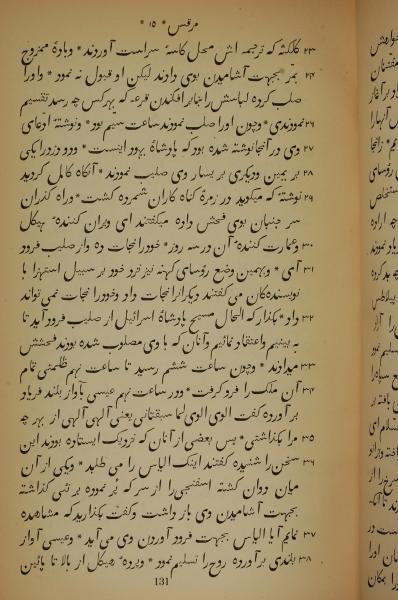 مرقس * ۱۵ *
۲۳ کلکثه که ترجمه اش محل کاسهٔ سراست آوردند * وبادهٔ ممزوج
۲۴ بمر بجهت آشامیدن بوی دادند لیکن او قبول نه نمود * واورا
صلب کرده لباسش را بنابرافکندن قرعه که بهرکس چه رسد تقسیم
۲۶ نمودندی * وچون اورا صلب نمودند ساعت سیم بود * ونوشتهٔ ادعای
۲۷ وی در آنجا نوشته شده بود که پادشاهٔ یهود اینست * ودو دزد را یکی
۲۸ بر یمین ودیگری بر یسار وی صلیب نمودند * آنگاه کامل گردید
۲۹ نوشتهٔ که میگوید در زمرهٔ گناه کاران شمرده گشت * وراه گذران
سر جنبان بوی فحش داده میگفتند ای ویران کنندهٔ هیکل
۳۰ وعمارت کنندهٔ آن در سه روز * خود را نجات ده واز صلیب فرود
۳۱ آی * وبهمین وضع رؤسای کهنه نیز نزد خود بر سبیل استهزا با
نویسندهکان می گفتند دیگرانرا نجات داد وخود را نجات نمی تواند
۳۲ داد * بگذار که الحال مسیح پادشاهٔ اسرائیل از صلیب فرود آید تا
به بینیم واعتقاد نمائیم وآنان که با وی مصلوب شده بودند فحشش
۳۳ میدادند * وچون ساعت ششم رسید تا ساعت نهم ظلمتی تمام
۳۴ آن ملک را فرو گرفت * ودر ساعت نهم عیسی بآواز بلند فریاد
بر آورده گفت الوی الوی لما سبقتانی یعنی آلهی آلهی از بهر چه
۳۵ مرا بگذاشتی * پس بعضی از آنان که نزدیک ایستاده بودند این
۳۶ سخن را شنیده گفتند اینک الیاس را می طلبد * ویکی از آن
میان دوان گشته اسفنجی را از سرکه پر نموده بر نئی گذاشته
بجهت آشامیدن وی باز داشت وگفت بگذارید که مشاهده
۳۷ نمایم آیا الیاس بجهت فرود آوردن وی می آید * وعیسی آواز
۳۸ بلندی بر آورده روح را تسلیم نمود * وپردهٔ هیکل از بالا تا پائین
131